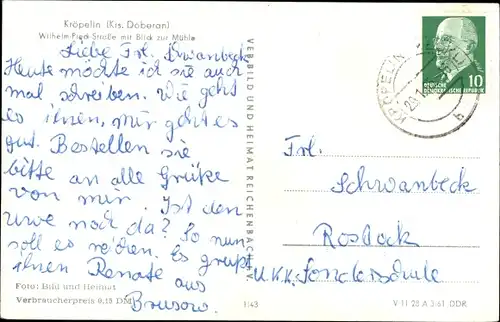 Kröpelin (Krs. Doberan)
Wilhelm-Pieck-Straße mit Blick zur Mühle
Liebe Frl. Schwanbeck
Heute möchte ich sie auch
mal schreiben. Wie geht
es ihnen, mir geht es
gut. Bestellen sie
bitte an alle Grüße
von mir. Ist den
Uwe noch da? So nun
soll es reichen. Es grüßt
ihnen Renate aus
Brusow.
Foto: Bild und Heimat
Verbraucherpreis 0,15 DM
VEB BILD UND HEIMAT REICHENBACH i. V.
1143
10
DEUTSCHE
DEMOKRATISCHE REPUBLIK
KRÖPELIN
Frl.
Schwanbeck
Rostock
Sonderschule
V 11 28 A 3/61 DDR